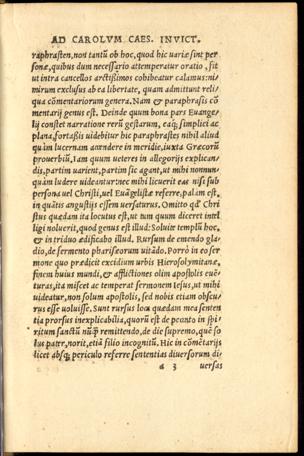 AD CAROLVM CAES. INVICT.
raphrasten, non tantũ ob hoc, quod hic uariæ sint per
sonæ, quibus dum necessario attemperatur oratio, fit
ut intra cancellos arctissimos cohibeatur calamus: ni-
mirum exclusus ab ea libertate, quam admittunt reli-
qua cõmentariorum genera. Nam & paraphrasis cõ
mentarij genus est. Deinde quum bona pars Euange-
lij constet narratione rerũ gestarum, eaq; simplici ac
plana, fortassis uidebitur hic paraphrastes nihil aliud
quàm lucernam accendere in meridie, iuxta Græcorũ
prouerbiũ, Iam quum ueteres in allegorijs explican-
dis, partim uarient, partim sic agant, ut mihi nonnun
quàm ludere uideantur: nec mihi licuerit eas nisi sub
persona uel Christi, uel Euãgelistæ referre, palàm est,
in quãtis angustijs essem uersaturus. Omitto qđ Chri
stus quædam ita locutus est, ut tum quum diceret intel
ligi noluerit, quod genus est illud: Soluite templũ hoc,
& in triduo ædificabo illud. Rursum de emendo gla-
dio, de fermento pharisæorum uitando. Porrò in eo ser
mone quo prædicit excidium urbis Hierosolymitanæ,
finem huius mundi, & afflictiones olim apostolis eue-
turas, ita miscet ac temperat sermonem Iesus, ut mihi
uideatur, non solum apostolis, sed nobis etiam obscu-
rus esse uoluisse. Sunt rursus loca quædam mea senten
tia prorsus inexplicabilia, quorũ est de peccato in spi-
ritum sanctũ nũq̃ remittendo, de die supremo, quẽ so
lus pater, norit, etiã filio incognitũ. Hic in cõmẽtarijs
licet absq; periculo referre sententias diuersorum di-
a 3 uersas